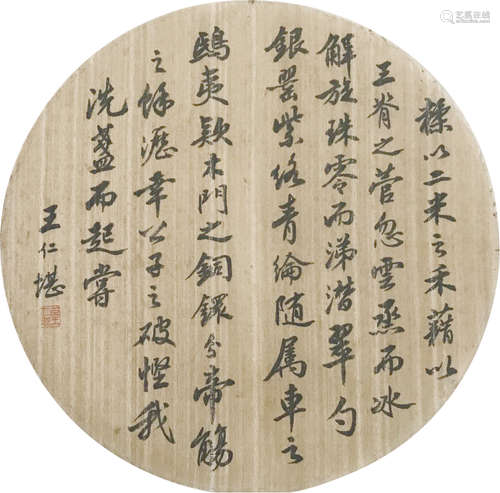 糅以二米之禾藉以
三脊之菅忽雲烝而冰
解旋珠零而涕潸翠勺
銀罌紫絡青綸随属車之
鴟夷欵木門之銅鐶分帝觴
之餘瀝幸公子之破慳我
洗盞而起嘗
王仁堪
艺狐在线